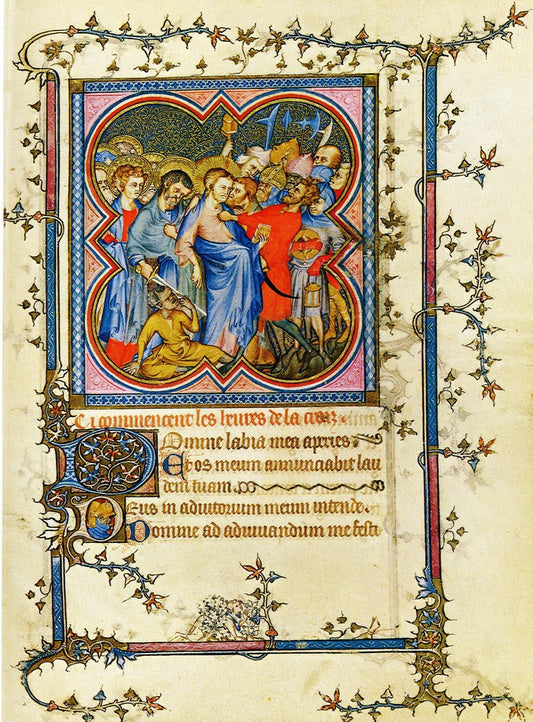 Ci commencent les heures de la croiz
Domine labia mea apries
Et os meum annunciabit lau
dem tuam.
Deus in adiutorium meum intende.
Domine ad adiuuandum me festi